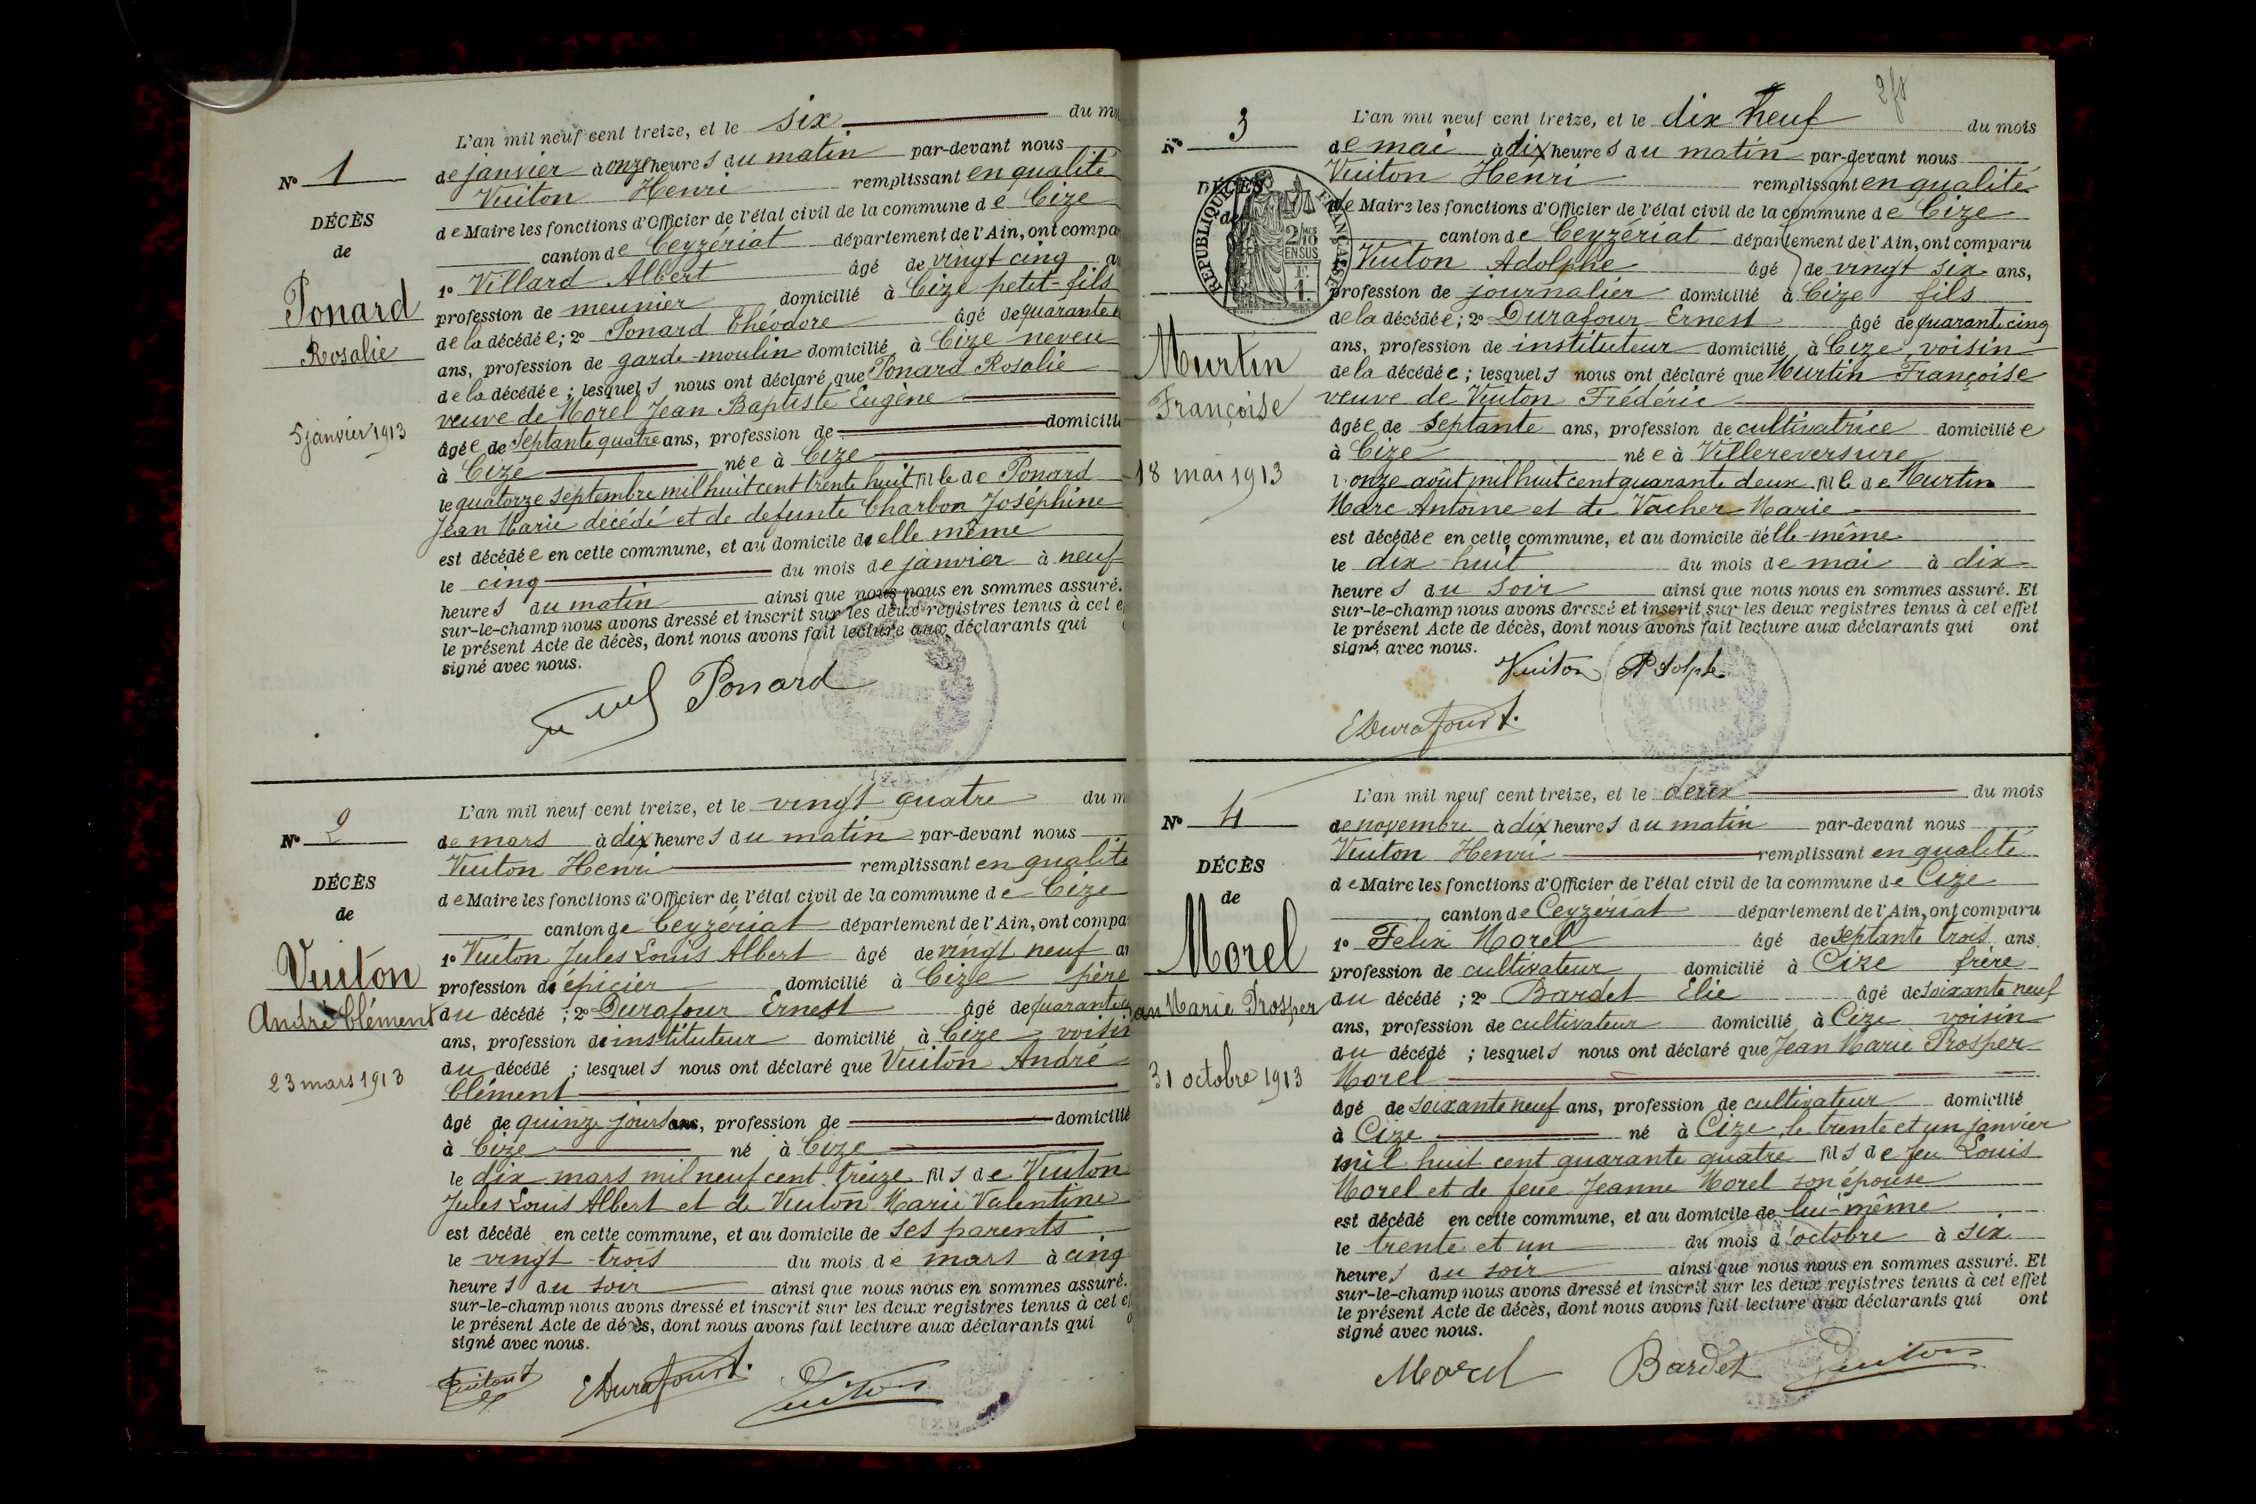 L'an mil neuf cent treize, et le six du
N° 1
de janvier à onze heures du matin par-devant nous
Vuiton Henri remplissant en qualité
DÉCÈS
de Maire les fonctions d'Officier de l'état civil de la commune de Cize
de
canton de Ceyzériat département de l'Ain, ont compa
1° Villard Albert âgé de vingt cinq
Ponard
profession de meunier domicilié à Cize petit-fils
Rosalie
de la décédée; 2° Ponard Théodore âgé de quarante
ans, profession de garde-moulin domicilié à Cize neveu
de la décédée; lesquels nous ont déclaré que Ponard Rosalie
veuve de Morel Jean Baptiste Eugène
5 janvier 1913
âgée de septante quatre ans, profession de domicilié
à Cize née à Cize
le quatorze septembre mil huit cent trente huit fille de Ponard
Jean Marie décédé et de defunte Charbon Joséphine
est décédée en cette commune, et au domicile de elle même
le cinq du mois de janvier à neuf
heures du matin ainsi que nous nous en sommes assuré.
sur-le-champ nous avons dressé et inscrit sur les deux registres tenus à cet e
le présent Acte de décès, dont nous avons fait lecture aux déclarants qui
signé avec nous.
Ponard
L'an mil neuf cent treize, et le vingt quatre du m
N° 2
de mars à dix heures du matin par-devant nous
Vuiton Henri remplissant en qualité
DÉCÈS
de Maire les fonctions d'Officier de l'état civil de la commune de Cize
de
canton de Ceyzériat département de l'Ain, ont compa
1° Vuiton Jules Louis Albert âgé de vingt neuf an
Vuiton
profession de épicier domicilié à Cize père
André Clément
du décédé; 2° Durafour Ernest âgé de quarante
ans, profession de instituteur domicilié à Cize voisin
du décédé; lesquels nous ont déclaré que Vuiton André
23 mars 1913
Clément
âgé de quinze jours ans, profession de domicilié
à Cize né à Cize
le dix mars mil neuf cent treize fils de Vuiton
Jules Louis Albert et de Vuiton Marie Valentine
est décédé en cette commune, et au domicile de ses parents
le vingt-trois du mois de mars à cinq
heures du soir ainsi que nous nous en sommes assuré.
sur-le-champ nous avons dressé et inscrit sur les deux registres tenus à cet e
le présent Acte de décès, dont nous avons fait lecture aux déclarants qui
signé avec nous.
Vuiton EDurafour Vuiton
L'an mil neuf cent treize, et le dix neuf du mois
N° 3
de mai à dix heures du matin par-devant nous
Vuiton Henri remplissant en qualité
DÉCÈS
de
RÉPUBLIQUE FRANÇAISE
2/10 EN SUS
F. 1.
de Maire les fonctions d'Officier de l'état civil de la commune de Cize
canton de Ceyzériat département de l'Ain, ont comparu
1° Vuiton Adolphe âgé de vingt six ans,
profession de journalier domicilié à Cize fils
de la décédée; 2° Durafour Ernest âgé de quarante cinq
Murtin
ans, profession de instituteur domicilié à Cize, voisin
de la décédée; lesquels nous ont déclaré que Murtin Françoise
Françoise
veuve de Vuiton Frédéric
âgée de septante ans, profession de cultivatrice domiciliée
à Cize née à Villereversure
18 mai 1913
le onze août mil huit cent quarante deux fille de Murtin
Marc Antoine et de Vacher Marie
est décédée en cette commune, et au domicile d'elle-même
le dix-huit du mois de mai à dix
heures du soir ainsi que nous nous en sommes assuré. Et
sur-le-champ nous avons dressé et inscrit sur les deux registres tenus à cet effet
le présent Acte de décès, dont nous avons fait lecture aux déclarants qui ont
signé avec nous.
Vuiton Adolphe
EDurafour
L'an mil neuf cent treize, et le deux du mois
N° 4
de novembre à dix heures du matin par-devant nous
Vuiton Henri remplissant en qualité
DÉCÈS
de Maire les fonctions d'Officier de l'état civil de la commune de Cize
de
canton de Ceyzériat département de l'Ain, ont comparu
1° Felix Morel âgé de septante trois ans,
Morel
profession de cultivateur domicilié à Cize frère
an Marie Prosper
du décédé; 2° Bardet Elie âgé de soixante neuf
ans, profession de cultivateur domicilié à Cize voisin
du décédé; lesquels nous ont déclaré que Jean Marie Prosper
31 octobre 1913
Morel
âgé de soixante neuf ans, profession de cultivateur domicilié
à Cize né à Cize, le trente et un janvier
mil huit cent quarante quatre fils de feu Louis
Morel et de feue Jeanne Morel son épouse
est décédé en cette commune, et au domicile de lui-même
le trente et un du mois d'octobre à six
heures du soir ainsi que nous nous en sommes assuré. Et
sur-le-champ nous avons dressé et inscrit sur les deux registres tenus à cet effet
le présent Acte de décès, dont nous avons fait lecture aux déclarants qui ont
signé avec nous.
Morel Bardet Vuiton